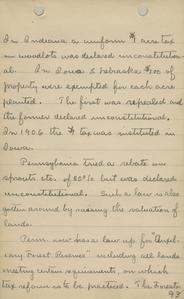 In Indiana a uniform $1 acre tax
on woodlots was declared inconstitution
al. In Iowa & Nebraska $100 of
property were exempted for each acre
planted. The first was repealed and
the former declared inconstitutional.
In 1906 the tax was instituted in
Iowa.
Pennsylvania tried a rebate on
sprouts etc. of 80% but was declared
unconstitutional. Such a law is also
gotten around by raising the valuation of
lands.
Penn. now has a law up for "Auxil-
iary Forest Reserves" including all lands
meeting certain requirements, on which
tax reform is to be practiced. The Forests